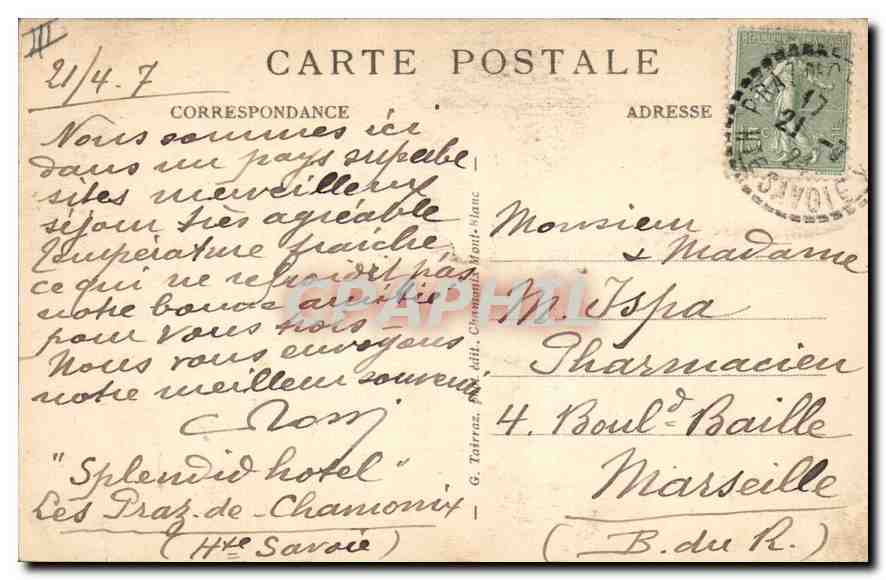 III
21/4.7
CARTE POSTALE
CORRESPONDANCE
ADRESSE
Nous sommes ici
dans un pays superbe
sites merveilleux
séjour très agréable
température fraîche
ce qui ne refroidit pas
notre bonne amitié
pour vous trois –
Nous vous envoyons
notre meilleur souvenir
"Splendid hotel"
Les Praz-de-Chamonix
(Hte Savoie)
G. Tairraz, phot. édit., Chamonix Mont-Blanc
Monsieur
& Madame
M. Ispa
Pharmacien
4. Boul.d Baille
Marseille
(B. du R.)
17
21
SAVOIE
CPAPHIL